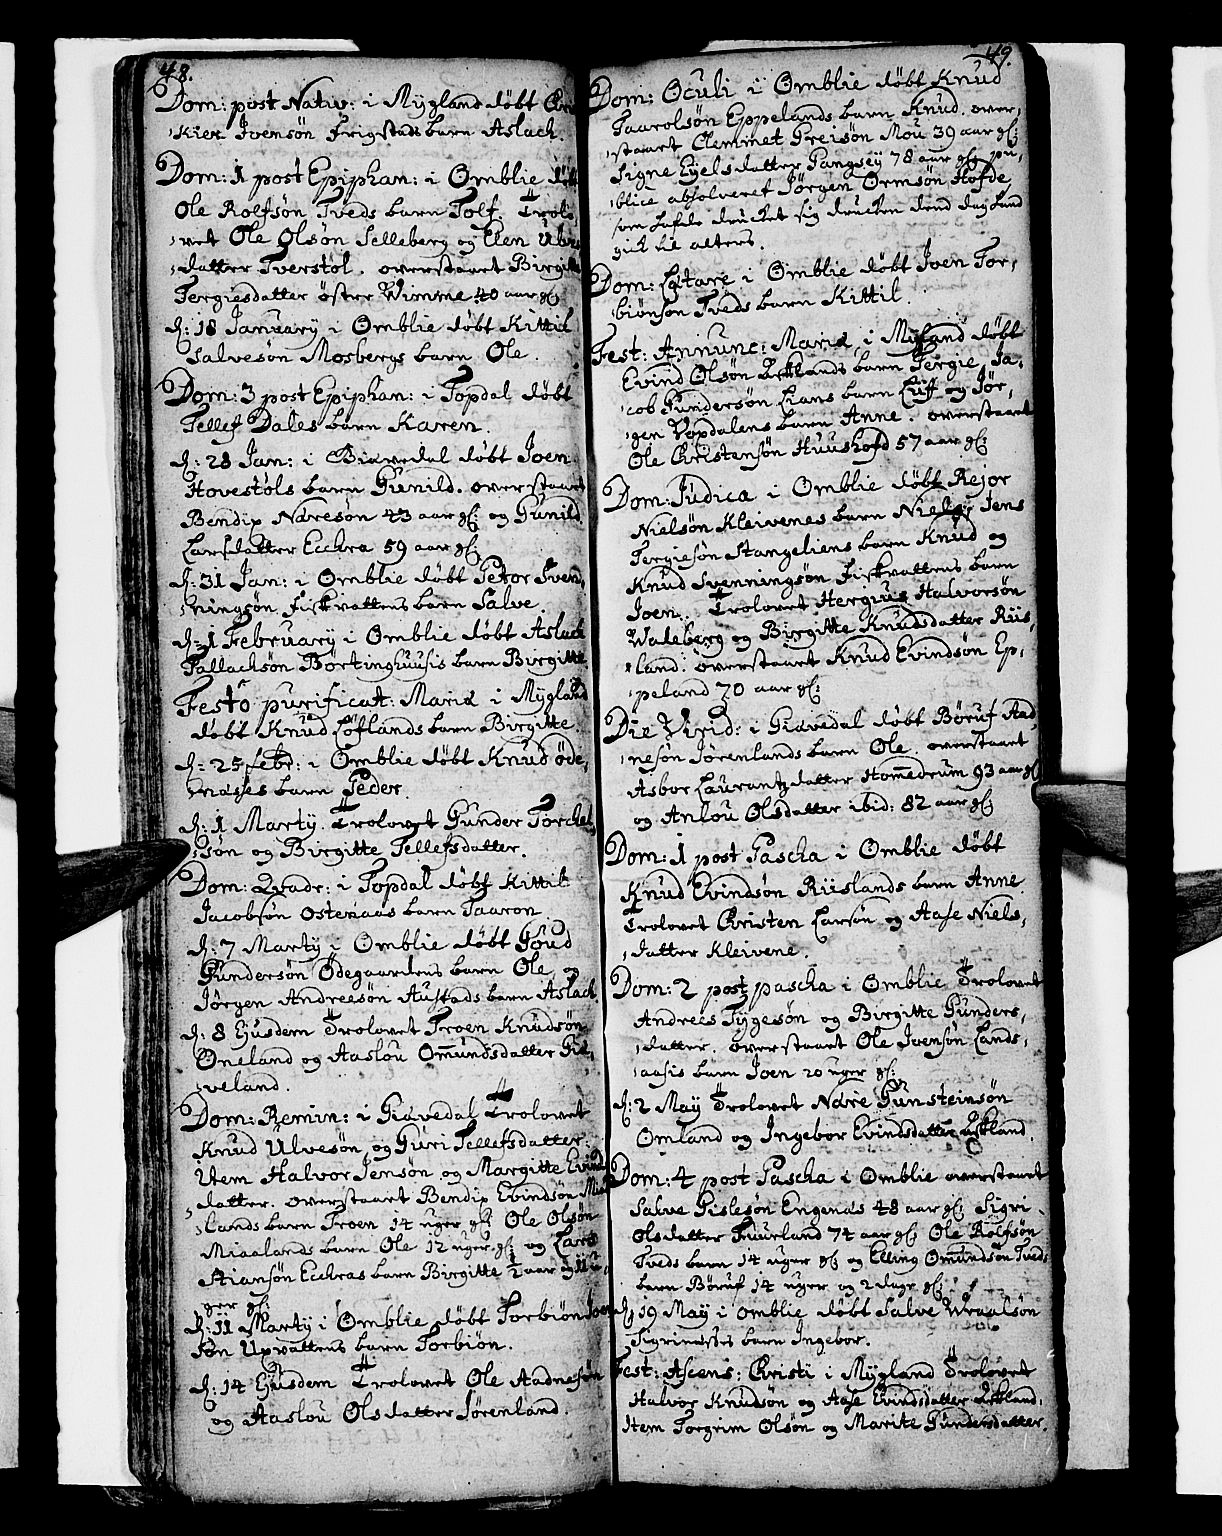 48.
Dom: post Nativ: i Mygland döbt
Kier Joensön Frigstads barn Aslach.
Dom: 1 post Epiphan: i Omblie döbt
Ole Rolfsön Tveds barn Tolf. Trolo,
,vet Ole Olsön Selleberg og Elen
,datter Tverstöl. overstaaet Birgitte
Tergiesdatter öster Wimme 40 aar gl:
d: 18 January i Omblie döbt Kittil
Salvesön Mosbergs barn Ole.
Dom: 3 post Epiphan: i Topdal döbt
Tellef Dales barn Karen.
d: 28 Jan: i Giævedal döbt Joen
Hovestöls barn Gunild. overstaaet
Bendix Naresön 43 aar gl: og Gunild
Larsdatter Ecchra 59 aar gl:
d: 31 Jan: i Omblie döbt Petor Sven,
,ningsön Fiskvattens barn Salve.
d: 1 February i Omblie döbt Aslach
Tallachsön Börtinghuusis barn Birgitte.
Festo purificat: Mariæ i Mygland
döbt Knud Löflands barn Birgitte.
d: 25 febr: i Omblie döbt Knud Öde,
,næsses barn Peder.
d: 1 Marty. Trolovet Gunder Torchel,
,sön og Birgitte Tellefsdatter.
Dom: Qvadr: i Topdal döbt Kittil
Jacobsön Osteraas barn Taaron
d: 7 Marty i Omblie döbt Goud
Gundersön Ödegaardens barn Ole og
Jörgen Andreesön Austads barn Aslach
d: 8 Ejusdem Trolovet Troen Knudsön
Öneland og Aaslou Omundsdatter Gil,
,veland.
Dom: Remin: i Giævedal Trolovet
Knud Ulvesön og Guri Tellefsdatter.
Item Halvor Jensön og Margitte Evind
,datter. overstaaet Bendix Evindsön
,lands barn Troen 14 uger gl: Ole Olsön
Miaalands barn Ole 12 uger gl: og Lars
Stiansön Ecchras barn Birgitte 1/2 aar og 11 u,
,ger gl:
d: 11 Marty i Omblie döbt Torbiön Joen
Sön Upvattens barn Torbiön.
d: 14 Ejusdem Trolovet Ole Aadnesön
og Aaslou Olsdatter Sörenland.
49.
Dom: Oculi i Omblie döbt Knud
Taarolsön Eppelands barn Knud. over,
,staaet Clemmet Greisön Mou 39 aar gl:
Signe Eyelsdatter Gangsey 78 aar gl: pu,
,blice absolveret Jörgen Ormsön Hofde
som hafde drucket sig drucken dend dag hand
gick til alters.
Dom: Lætare i Omblie döbt Joen Tor,
,biönsön Tveds barn Kittil.
Fest: Annunc: Mariæ i Mygland döbt
Evind Olsön Lands barn Tergie, Ja,
,cob Gundersön Lians barn Liff og Jör,
,gen Vopdalens barn Anne. overstaaet
Ole Christensön Huushofd 57 aar gl:
Dom: Judica i Omblie döbt Rejor
Nielsön Kleivenes barn Niels, Jens
Tergiesön Stangeliens barn Knud og
Knud Svenningsön Fiskvattens barn
Joen. Trolovet Hergius Halvorsön
Waleberg og Birgitte Knudsdatter Riis,
,land. overstaaet Knud Evindsön Ep,
,peland 70 aar gl:
Die Virid: i Giævedal döbt Böruf Aad,
,nesön Sörenlands barn Ole. overstaaet
Asbor Laurantzdatter Hommedrum 93 aar gl:
og Anlou Olsdatter ibid: 82 aar gl:
Dom: 1 post Pascha i Omblie döbt
Knud Evindsön Riislands barn Anne
Trolovet Christen Larsön og Aase Niels,
,datter Kleivene.
Dom: 2 post pascha i Omblie Trolovet
Andrees Tygesön og Birgitte Gunders,
,datter. overstaaet Ole Joensön Lands,
,aasis barn Joen 20 uger gl:
d: 2 May Trolovet Nare Gunsteinsön
Omland og Ingebor Evindsdatter
Dom: 4 post Pascha i Omblie overstaaet
Salve Gislesön Engenæs 48 aar gl: Sigri
Olsdatter Fuurland 74 aar gl: Ole Rolfsön
Tveds barn 14 uger gl: og Elling Omundsön Tveds
barn Böruf 14 uger og 2 dage gl:
d: 19 May i Omblie döbt Salve Wraalsön
Sigrinæssis barn Ingebor.
Fest: Ascens: Christi i Mygland Trolovet
Halvor Knudsön og Aase Evindsdatter
Item Torgrim Olsön og Marite Gundersdatter.